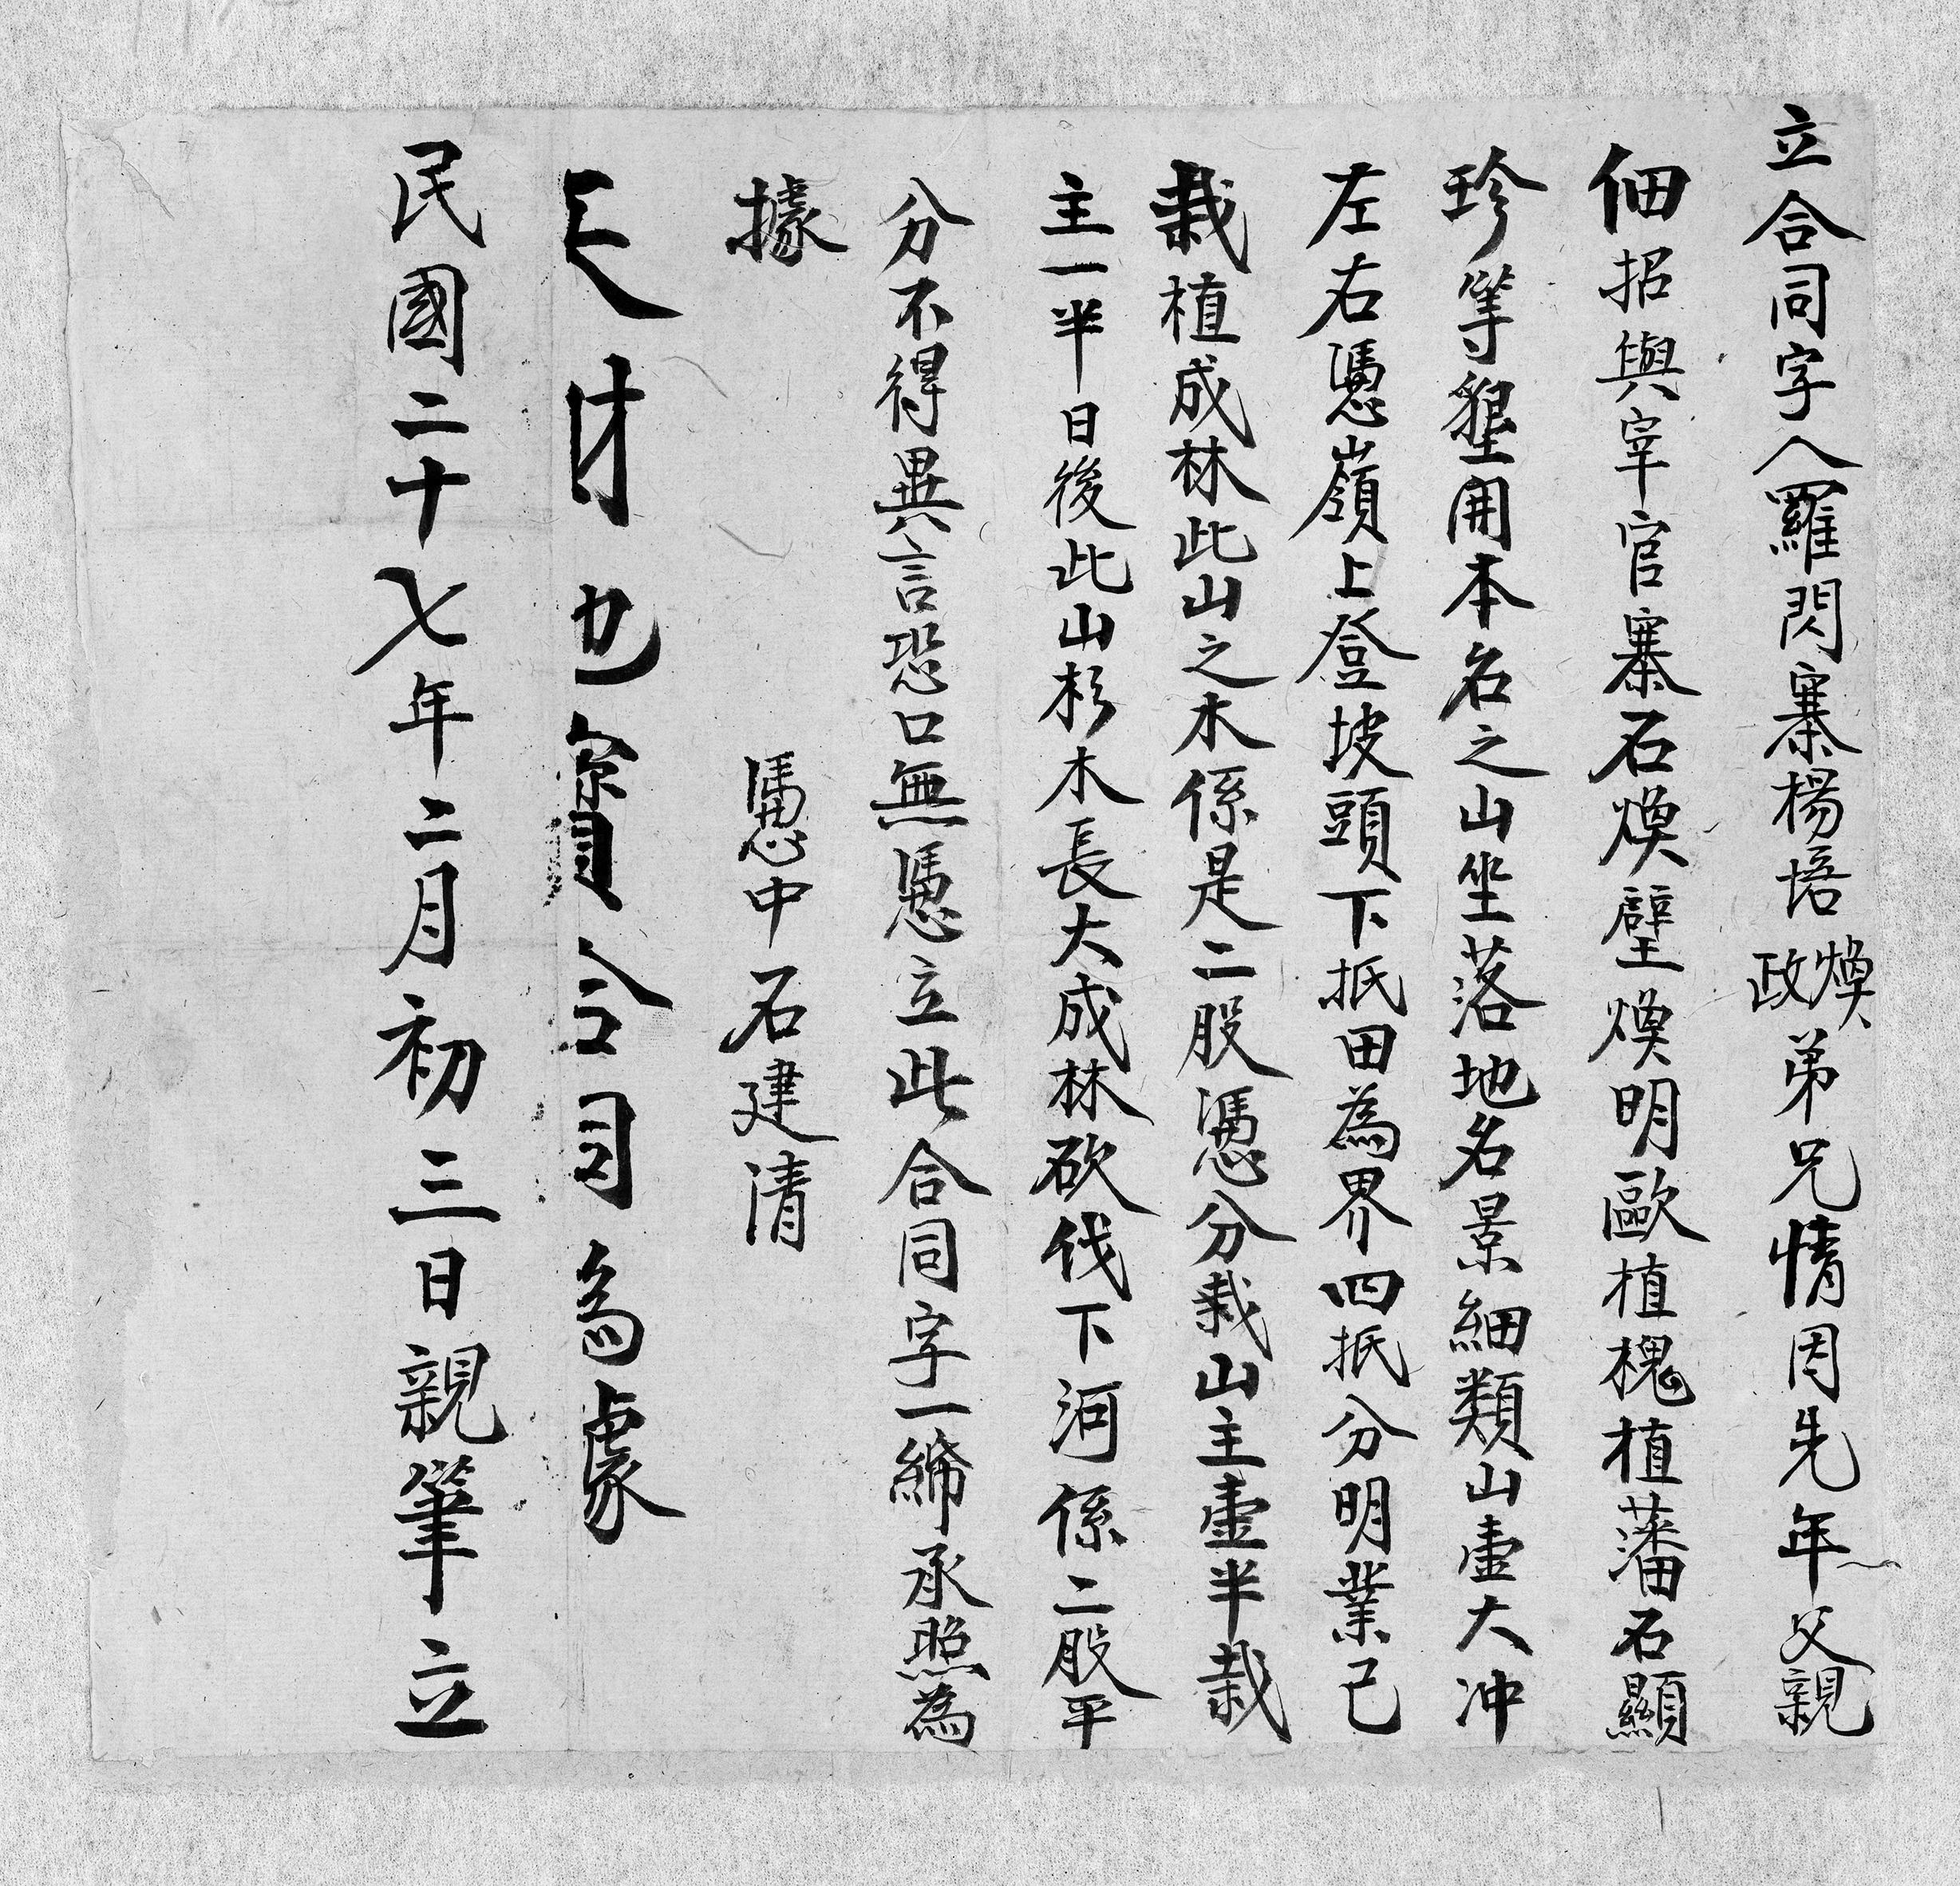 立合同字人羅閃寨楊培煥政弟兄情因先年父親
佃招與宰官寨石煥璧煥明歐植槐植藩石顯
珍等墾開本名之山坐落地名景細類山壹大冲
左右憑嶺上登坡頭下抵田為界四抵分明業已
栽植成林此山之木係是二股憑分栽山主壹半栽
主一半日後此山杉木長大成林砍伐下河係二股平
分不得異言恐口無憑立此合同字一締承照為
據
憑中石建清
合同為據
民國二十七年二月初三日親筆立